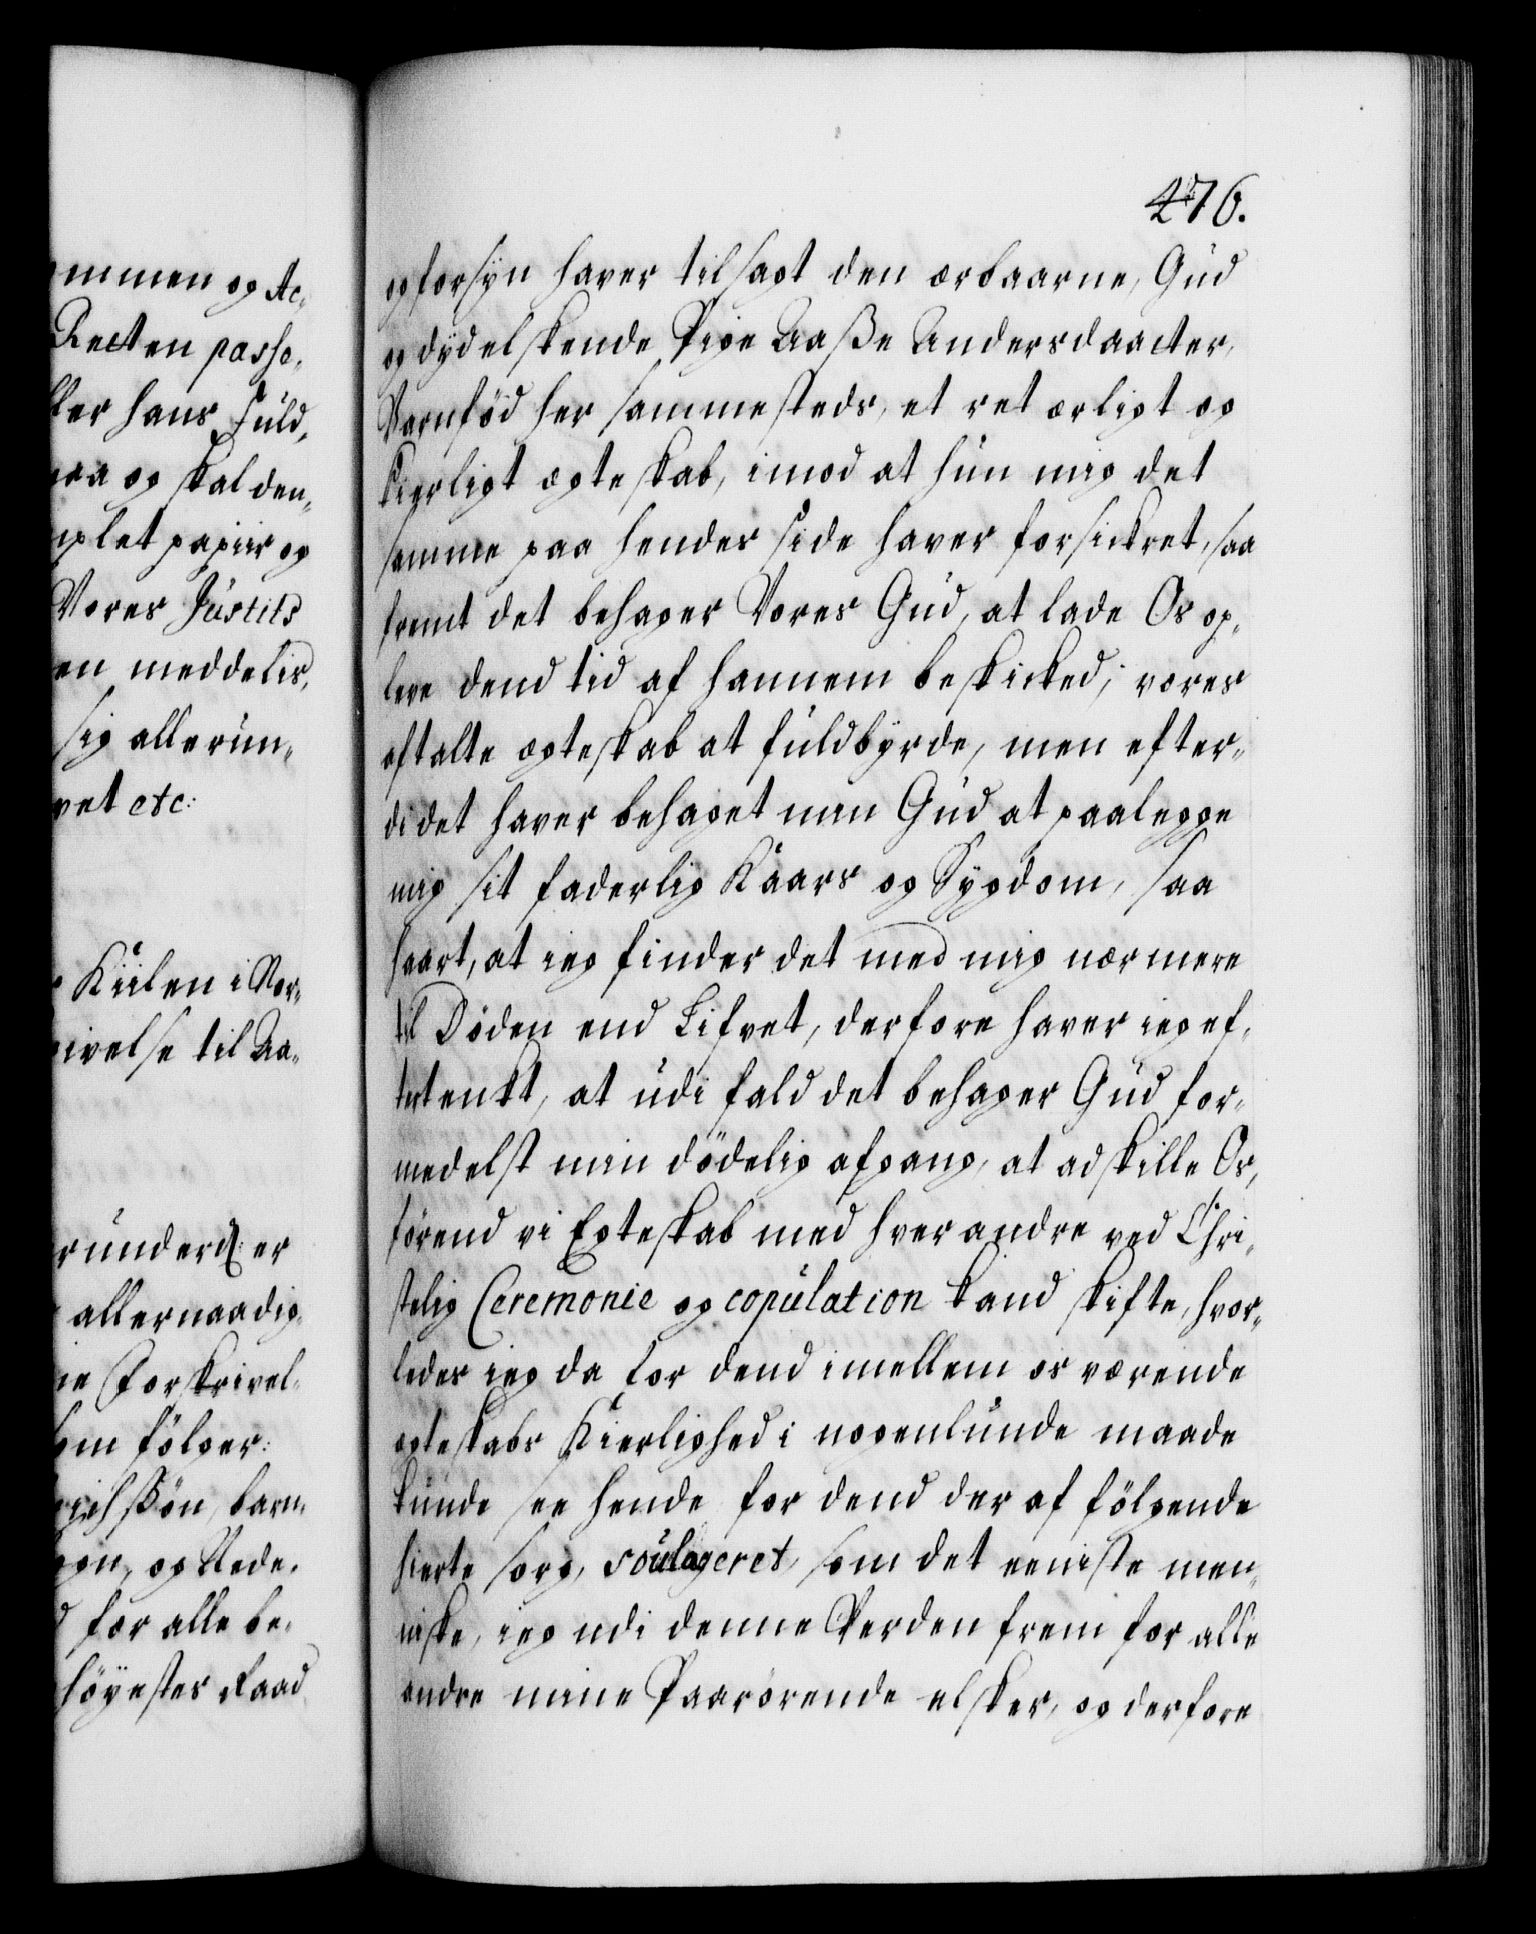 ommen og Ac-
Recten passe-
ller hans Fuld-
maa og skal den-
mplet papiir og
Vores Justits
en meddelis,
sig allerun-
vet etc:
Kiilen i Nor-
rivelse til Aa-
r underd: er
allernaadig-
ne Forskrivel-
som fölger:
richssön, barn-
ogn, og Nede-
d for alle be-
höyester Raad
476.
og forsyn haver tilsagt den ærbaarne, Gud
og dydelskende Pige Aaße Andersdaatter,
Barnföd her sammesteds, et ret ærligt og
Kierligt ægteskab, imod at hun mig det
samme paa hendes side haver forsickret, saa
fremt det behager Vores Gud, at lade Os op-
leve dend tid af hannem beskicked, vores
aftalte ægteskab at fuldbyrde, men efter-
di det haver behaget min Gud at paalegge
mig sit faderlig Kaars og Sygdom, saa
haart, at ieg finder det med mig nærmere
til Döden end Lifvet, derfore haver ieg ef-
tertenkt, at udi fald det behager Gud for-
medelst min dödelig afgang, at adskille Os,
förend vi Egteskab med hverandre ved Chri-
stelig Ceremonie og copulation kand skifte, hvor-
ledes ieg da for dend imellem os værende
ægteskabs Kierlighed i nogenlunde maade
kunde see hende for dend der af fölgende
hierte sorg, soulageret, som det eeniste men-
niske, ieg udi denne Verden frem for alle
andre mine Paarörende elsker, og derfore